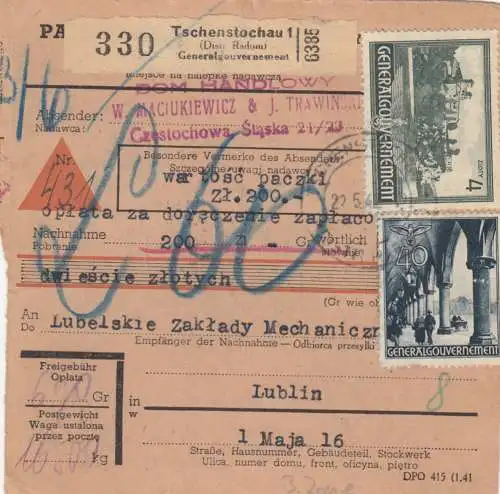 PA
330
Tschenstochau 1
(Distr. Radom)
Generalgouvernement
6385
miejsce na nalepkę nadawczą
DOM HANDLOWY
W. MACIUKIEWICZ & J. TRAWINSKI
Częstochowa, Śląska 21/23
Absender:
Nadawca:
Nr.
431
Besondere Vermerke des Absenders
Szczególne uwagi nadawcy
wartość paczki
Zł. 200.-
opłata za doręczenie zapłaco
Nachnahme
Pobranie
200 Zł Gr
wörtlich
słownie
dwieście złotych
(Gr wie ob
An
Do
Lubelskie Zakłady Mechaniczn
Empfänger der Nachnahme — Odbiorca przesyłki
Freigebühr
Opłata
Gr
Postgewicht
Waga ustalona
przez pocztę
kg
in
w
Lublin
8
1 Maja 16
Straße, Hausnummer, Gebäudeteil, Stockwerk
Ulica, numer domu, front, oficyna, piętro
DPO 415 (1.41
GENERALGOUVERNEMENT
4 ZŁOTY
40
GENERALGOUVERNEMENT